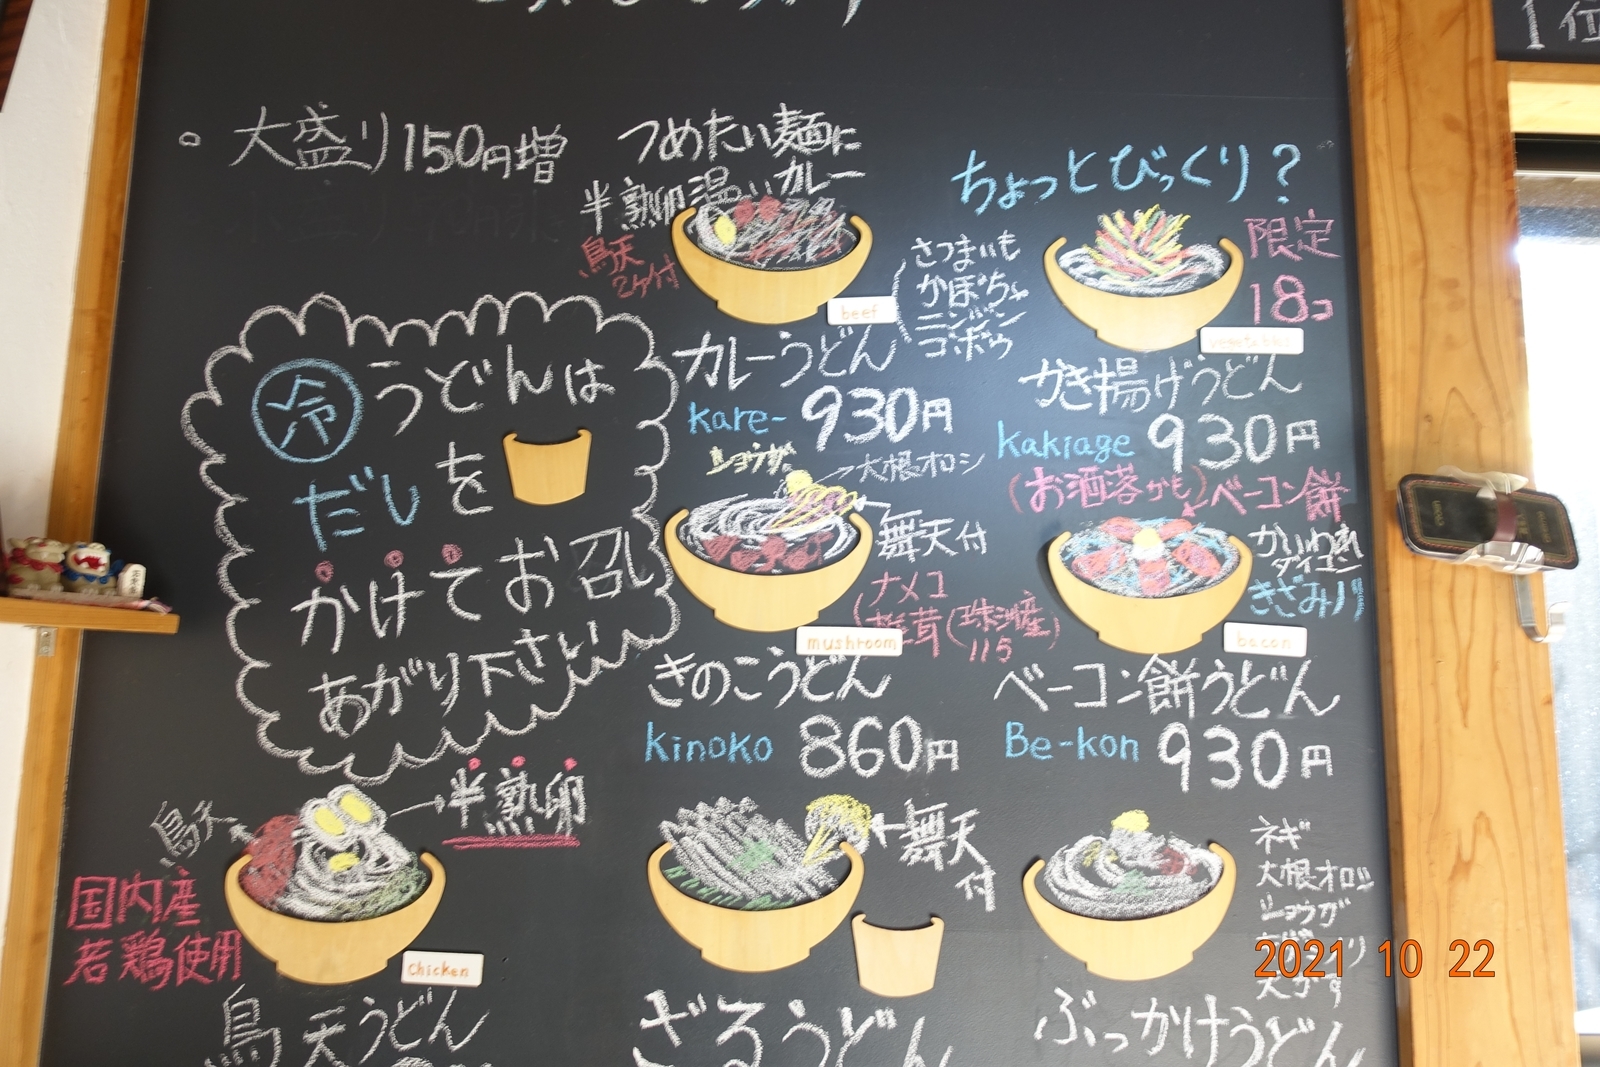 1位
大盛り150円増
つめたい麺に
温いカレー
半熟卵
鳥天
2ケ付
beef
カレーうどん
kare- 930円
ちょっとびっくり?
さつまいも
かぼちゃ
ニンジン
ゴボウ
限定
18コ
vegetables
かき揚げうどん
kakiage 930円
冷うどんは
だしを
かけてお召し
あがり下さい
ショウガ
大根オロシ
舞天付
ナメコ
椎茸(珠洲産)
115
mushroom
きのこうどん
kinoko 860円
(お洒落かも)ベーコン餅
かいわれ
ダイコン
きざみノリ
bacon
ベーコン餅うどん
Be-kon 930円
鳥天
半熟卵
国内産
若鶏使用
chicken
鳥天うどん
舞天
付
ざるうどん
ネギ
大根オロシ
ショウガ
天かす
ぶっかけうどん
2021 10 22